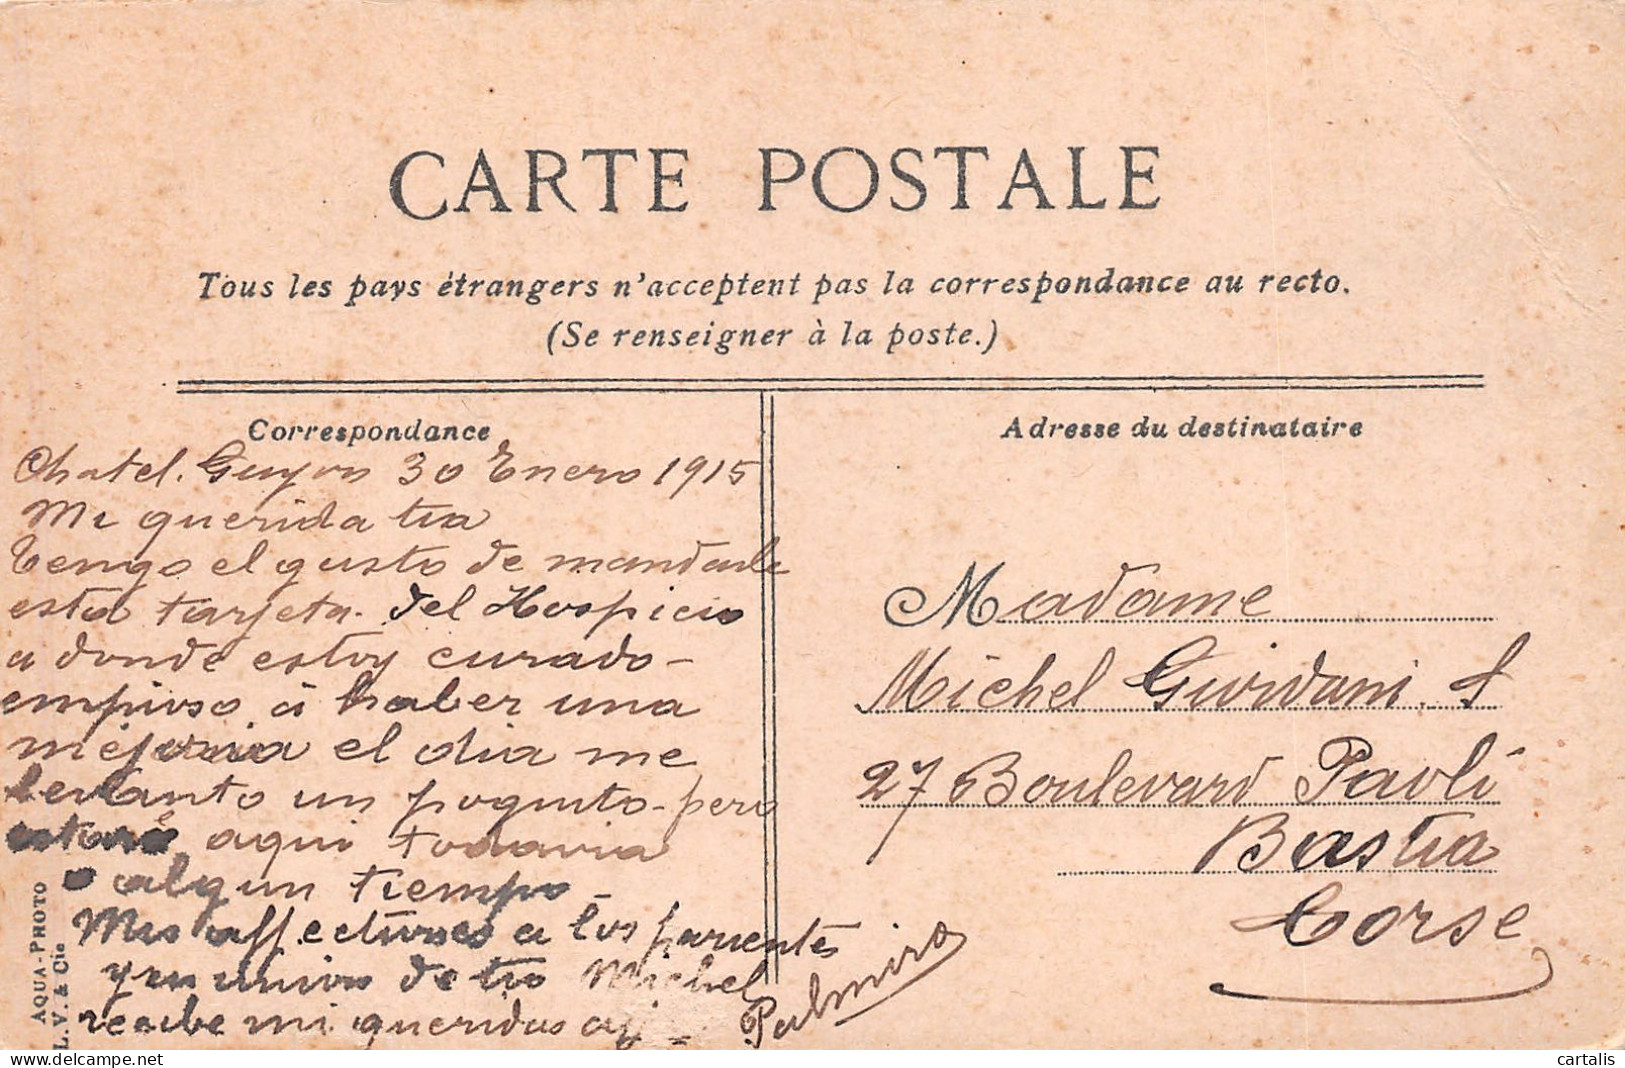 CARTE POSTALE
Tous les pays étrangers n'acceptent pas la correspondance au recto.
(Se renseigner à la poste.)
Correspondance
Chatel. Guyon 30 Enero 1915
Mi querida tia
tengo el gusto de mandarle
esta tarjeta. del Hospicio
a donde estoy curado-
empieso á haber una
mejoria el dia me
levanto un poquito-pero
estaré aqui todavia
algun tiempo-
Mis affectuosos a los parientes
y en union de tio Michel
recibe mi queridas
Palmira
Adresse du destinataire
Madame
Michel Giordani.
27 Boulevard Paoli
Bastia
Corse
AQUA-PHOTO
L. V. & Cie
cartalis